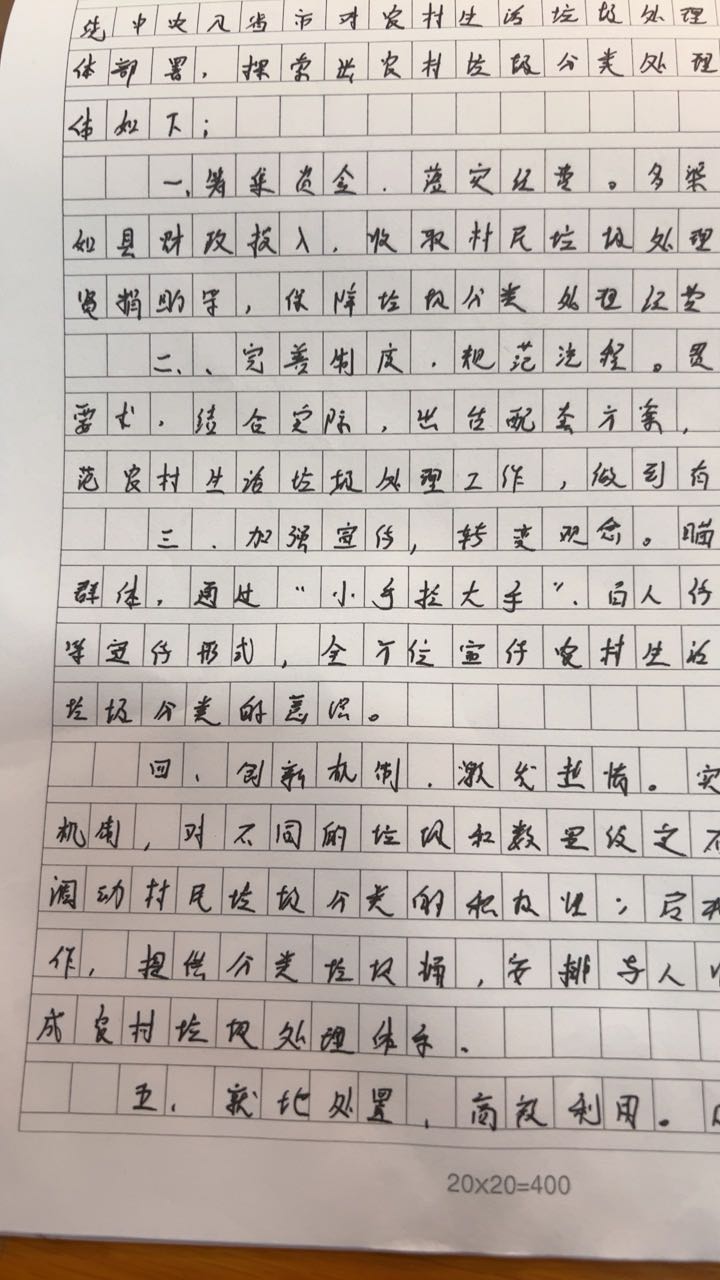 中央及省市对农村生活垃圾处理
体部署，探索出农村垃圾分类处理
体如下：
一、筹集资金，落实经费。多渠
如县财政投入，收取村民垃圾处理
贤捐助等，保障垃圾分类处理经费
二、、完善制度，规范流程。贯
要求，结合实际，出台配套方案，
范农村生活垃圾处理工作，做到有
三、加强宣传，转变观念。瞄
群体，通过“小手拉大手”、百人传
等宣传形式，全方位宣传农村生活
垃圾分类的意识。
四、创新机制，激发热情。实
机制，对不同的垃圾和数量给之不
调动村民垃圾分类的积极性；后
作，提供分类垃圾桶，安排专人
成农村垃圾处理体系。
五、就地处置，高效利用。
20×20=400